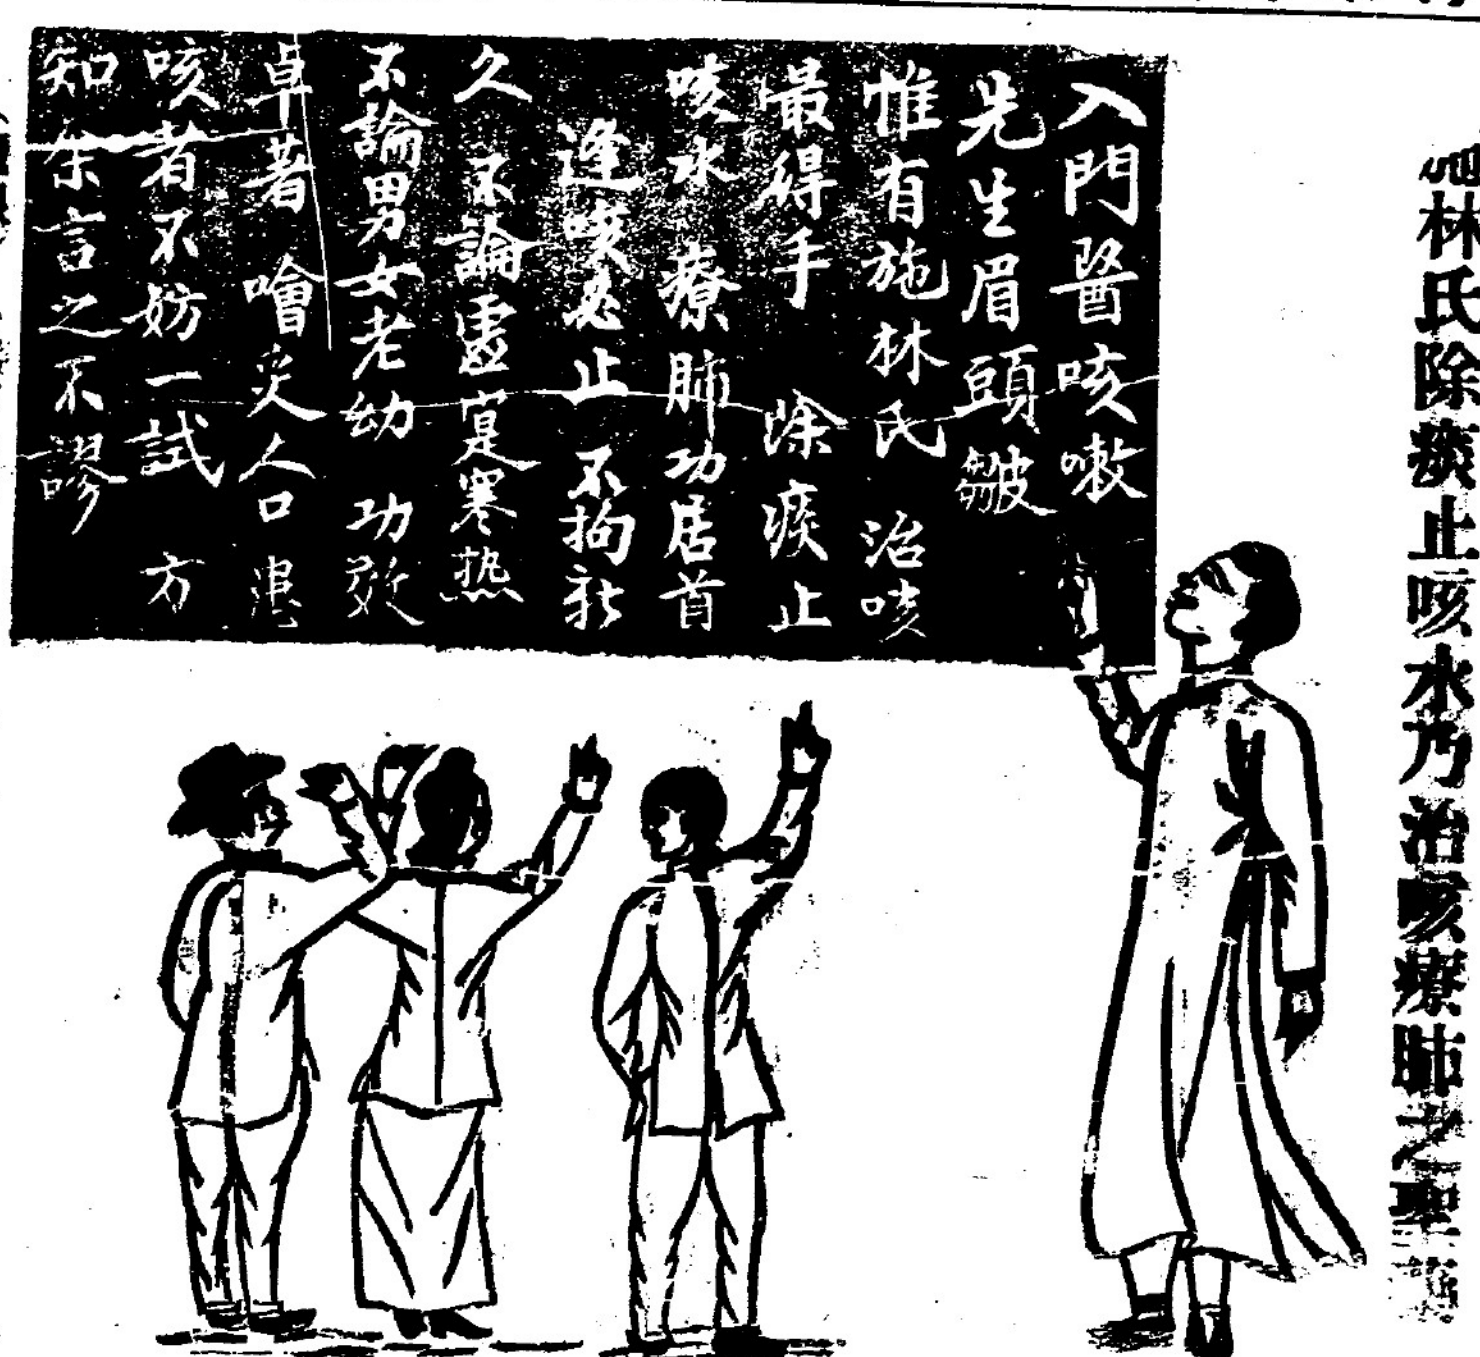 施林氏除痰止咳水乃治咳療肺之聖
入門醫咳嗽
先生眉頭皺
惟有施林氏 治咳
最得手 除痰止
咳水 療肺功居首
逢咳必止 不拘新
久 不論虛寔寒熱
不論男女老幼 功效
卓著 噲炙人口 患
咳者不妨一試 方
知余言之不謬